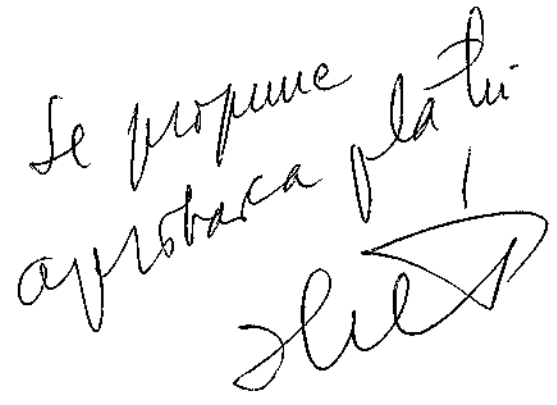 Se propune
aprobarea plății